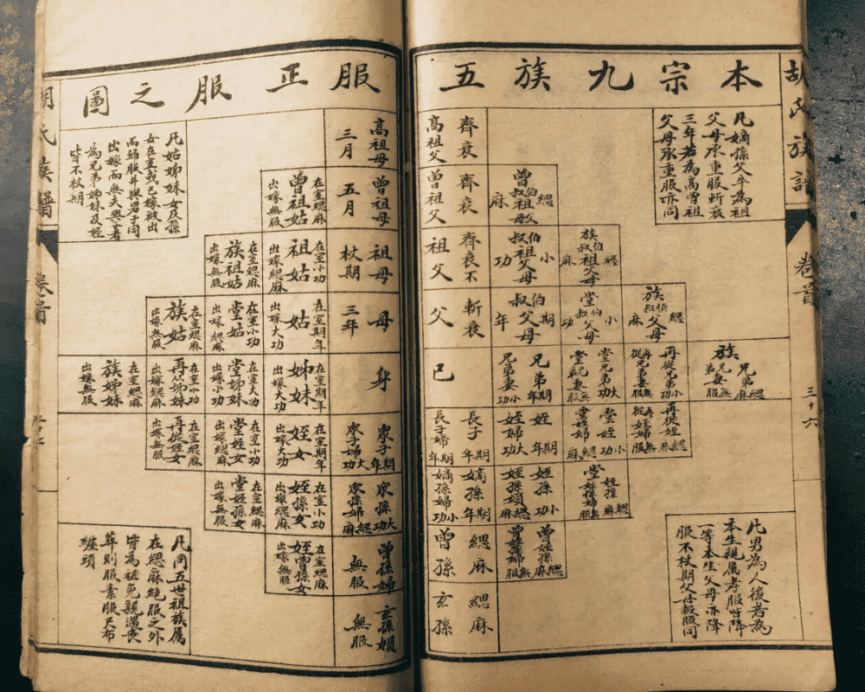 胡氏族譜
卷首
三十六
本宗九族五服正服之圖
凡嫡孫父卒為祖
父母承重服斬衰
三年若為高曾祖
父母承重服亦同
齊衰
高祖父
高祖母
三月
曾伯叔祖父母
緦麻
齊衰
曾祖父
曾祖母
五月
曾祖姑
在室緦麻
出嫁無服
族伯叔祖父母
緦麻
伯叔祖父母
小功
齊衰不
祖父
祖母
杖期
祖姑
在室小功
出嫁緦麻
族祖姑
在室緦麻
出嫁無服
族伯叔父母
緦麻
堂伯叔父母
小功
伯叔父母
期年
斬衰
父
母
三年
姑
在室期年
出嫁大功
堂姑
在室小功
出嫁緦麻
族姑
在室緦麻
出嫁無服
族兄弟緦麻
族兄弟妻無服
再從兄弟小功
再從兄弟妻無服
堂兄弟大功
堂兄弟妻無服
兄弟期年
兄弟妻小功
己
身
姊妹
在室期年
出嫁大功
堂姊妹
在室大功
出嫁小功
再從姊妹
在室小功
出嫁緦麻
族姊妹
在室緦麻
出嫁無服
再從姪緦麻
再從姪婦無服
堂姪小功
堂姪婦緦麻
姪期年
姪婦大功
長子期年
長子婦期年
衆子期年
衆子婦大功
姪女
在室期年
出嫁大功
堂姪女
在室小功
出嫁緦麻
再從姪女
在室緦麻
出嫁無服
堂姪孫緦麻
堂姪孫婦無服
姪孫小功
姪孫婦緦麻
嫡孫期年
嫡孫婦小功
衆孫大功
衆孫婦緦麻
姪孫女
在室小功
出嫁緦麻
堂姪孫女
在室緦麻
出嫁無服
曾姪孫緦麻
曾姪孫婦無服
緦麻
曾孫
曾孫婦
無服
姪曾孫女
在室緦麻
出嫁無服
緦麻
玄孫
玄孫婦
無服
凡男為人後者為
本生親属孝服皆降
一等本生父母亦降
服不杖期父母報服同
凡姑姊妹女及孫
女在室或已嫁被出
而歸服并與男子同
出嫁而無夫與子者
為兄弟姊妹及姪
皆不杖期
凡同五世祖族属
在緦麻絕服之外
皆為袒免親遇喪
葬則服素服尺布
纏頭
胡氏族譜
卷首